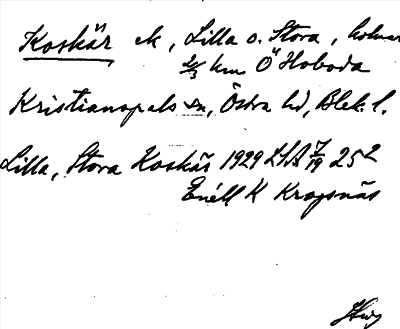 Koskär , Lilla o. Stora , holmar
2/3 km Ö Hoboda
Kristianopels sn, Östra hd, Blek. l.
Lilla, Stora Koskär 1929 LSA 7/19 25²
Enéll K Kragsnäs